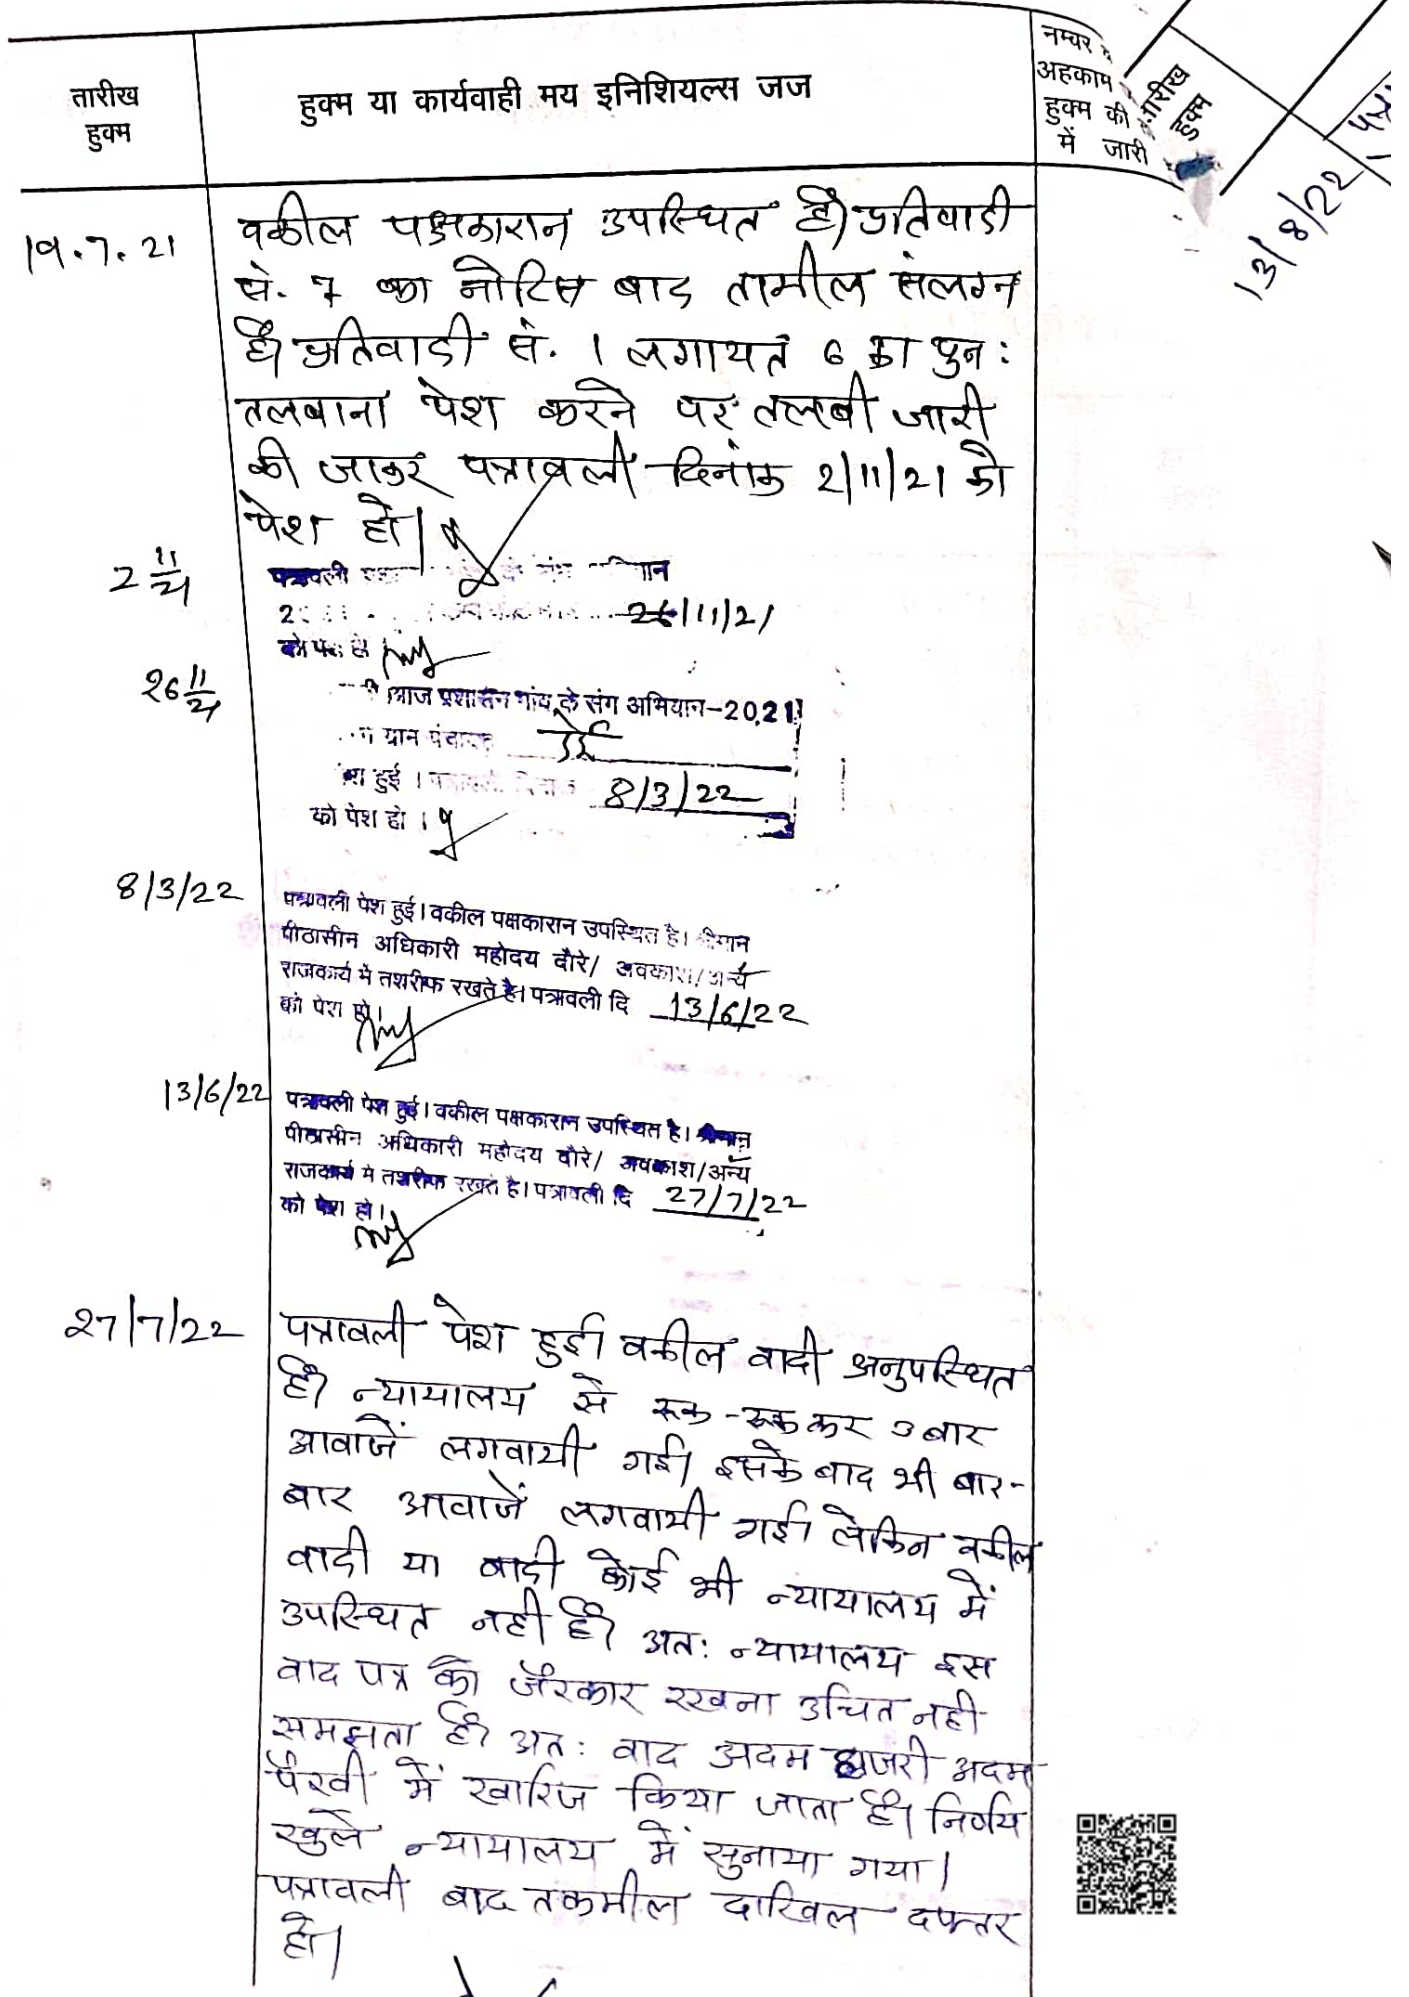 तारीख
हुक्म
हुक्म या कार्यवाही मय इनिशियल्स जज
नम्बर
अहकाम
हुक्म की
में जारी
तारीख
हुक्म
13/8/22
19.7.21
वकील पक्षकारान उपस्थित है। प्रतिवादी
सं. 7 का नोटिस बाद तामील संलग्न
है। प्रतिवादी सं. 1 लगायत 6 का पुन:
तलबाना पेश करने पर तलबी जारी
की जाकर पत्रावली दिनांक 2/11/21 को
पेश हो।
2 11/21
पत्रावली के संग
26/11/21
को पेश हो
26 11/21
आज प्रशासन गांव के संग अभियान-2021
पंचायत
हुई । 8/3/22
को पेश हो ।
8/3/22
पत्रावली पेश हुई। वकील पक्षकारान उपस्थित है। श्रीमान
पीठासीन अधिकारी महोदय दौरे/ अवकाश/अन्य
राजकार्य मे तशरीफ रखते है। पत्रावली दि 13/6/22
को पेश हो।
13/6/22
पत्रावली पेश हुई। वकील पक्षकारान उपस्थित है। श्रीमान
पीठासीन अधिकारी महोदय दौरे/ अवकाश/अन्य
राजकार्य मे तशरीफ रखते है। पत्रावली दि 27/7/22
को पेश हो।
27/7/22
पत्रावली पेश हुई। वकील वादी अनुपस्थित
है। न्यायालय से रूक-रूक कर 3 बार
आवाजें लगवायी गई। इसके बाद भी बार-
बार आवाजें लगवायी गई। लेकिन वकील
वादी या वादी कोई भी न्यायालय में
उपस्थित नही है। अत: न्यायालय इस
वाद पत्र को जैरकार रखना उचित नही
समझता है। अत: वाद अदम हाजरी अदम
पैरवी में खारिज किया जाता है। निर्णय
खुले न्यायालय में सुनाया गया।
पत्रावली बाद तकमील दाखिल दफ्तर
हो।